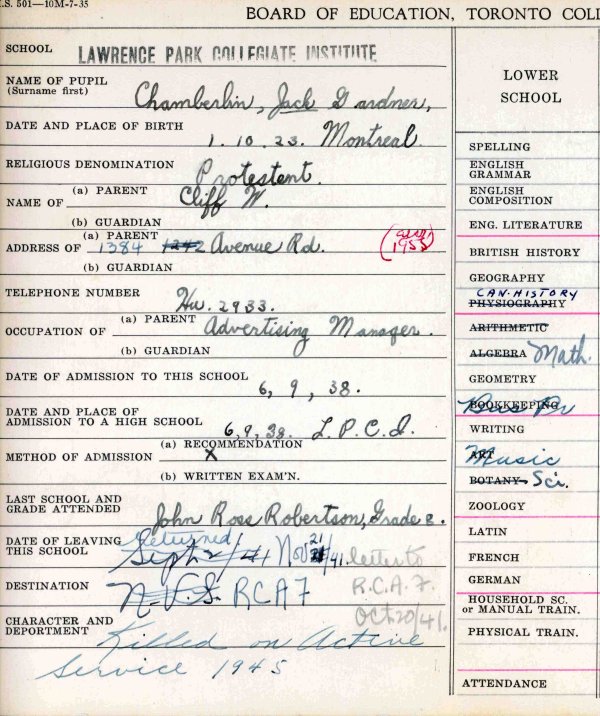 I.S. 501—10M-7-35
BOARD OF EDUCATION, TORONTO COLL
SCHOOL LAWRENCE PARK COLLEGIATE INSTITUTE
NAME OF PUPIL
(Surname first) Chamberlin, Jack Gardner,
DATE AND PLACE OF BIRTH 1.10.23. Montreal
RELIGIOUS DENOMINATION Protestent.
NAME OF (a) PARENT Cliff W.
(b) GUARDIAN
ADDRESS OF (a) PARENT 1384 1242 Avenue Rd.
1955
(b) GUARDIAN
TELEPHONE NUMBER Hu. 2933.
OCCUPATION OF (a) PARENT Advertising Manager.
(b) GUARDIAN
DATE OF ADMISSION TO THIS SCHOOL 6, 9, 38.
DATE AND PLACE OF
ADMISSION TO A HIGH SCHOOL 6, 9, 38. L.P.C.I.
METHOD OF ADMISSION (a) RECOMMENDATION X
(b) WRITTEN EXAM'N.
LAST SCHOOL AND
GRADE ATTENDED John Ross Robertson, Grade 8.
DATE OF LEAVING returned
THIS SCHOOL Sept 2/41 Nov 21/41 letter to
DESTINATION N.F.S. RCAF R.C.A.F.
Oct 20/41.
CHARACTER AND
DEPORTMENT Killed on Active
Service 1945
LOWER
SCHOOL
SPELLING
ENGLISH
GRAMMAR
ENGLISH
COMPOSITION
ENG. LITERATURE
BRITISH HISTORY
GEOGRAPHY
CAN. HISTORY
PHYSIOGRAPHY
ARITHMETIC
ALGEBRA Math.
GEOMETRY
BOOKKEEPING Bus Pr
WRITING
ART Music
BOTANY Sci.
ZOOLOGY
LATIN
FRENCH
GERMAN
HOUSEHOLD SC.
or MANUAL TRAIN.
PHYSICAL TRAIN.
ATTENDANCE